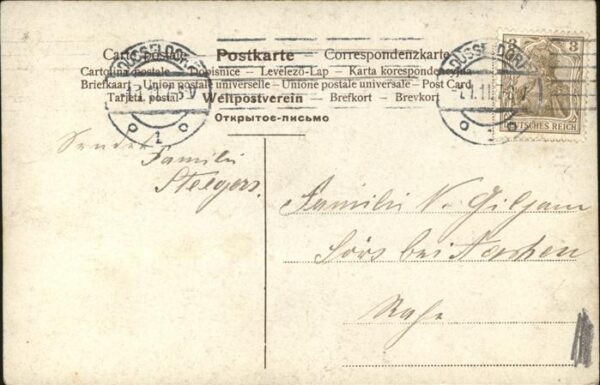 Carte postale Postkarte Correspondenzkarte
Cartolina postale – Dopisnice – Levelező-Lap – Karta korespondencyjna
Briefkaart – Union postale universelle – Unione postale universale – Post Card
Tarjeta postal Weltpostverein – Brefkort – Brevkort
Открытое-письмо
DÜSSELDORF
1
DÜSSELDORF
1
3 3
DEUTSCHES REICH
Sender
Familie
Steegers.
Familie
Sörs bei Aachen